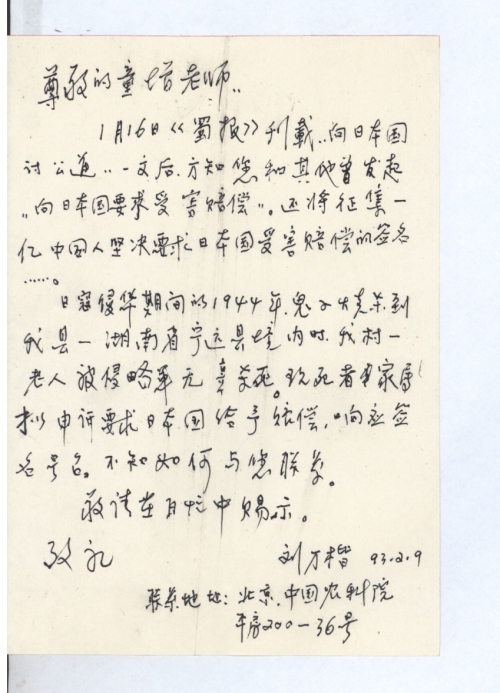 尊敬的童增老师:
1月16日《蜀报》刊载"向日本国
讨公道"一文后,方知您和其他曾发起
"向日本国要求受害赔偿"。还将征集一
亿中国人坚决要求日本国受害赔偿的签名
……。
日寇侵华期间的1944年,鬼子大 杀到
我县—湖南省宁远县境内时,我村一
老人被侵略军无辜杀死。现死者 家属
拟申诉要求日本国给予赔偿,响应签
名号召。不知如何与您联系。
敬请在百忙中赐示。
致礼
刘万楷 93.2.9
联系地址:北京.中国农科院
平房200—36号